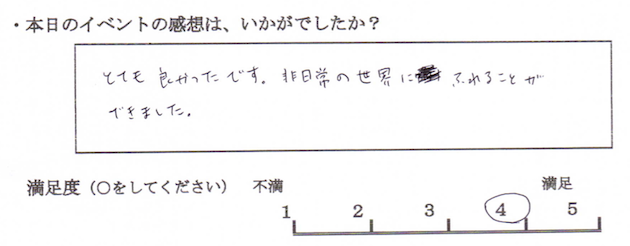 ・本日のイベントの感想は、いかがでしたか？
とても良かったです。非日常の世界にふれることが
できました。
満足度（○をしてください） 不満 満足
1 2 3 4 5